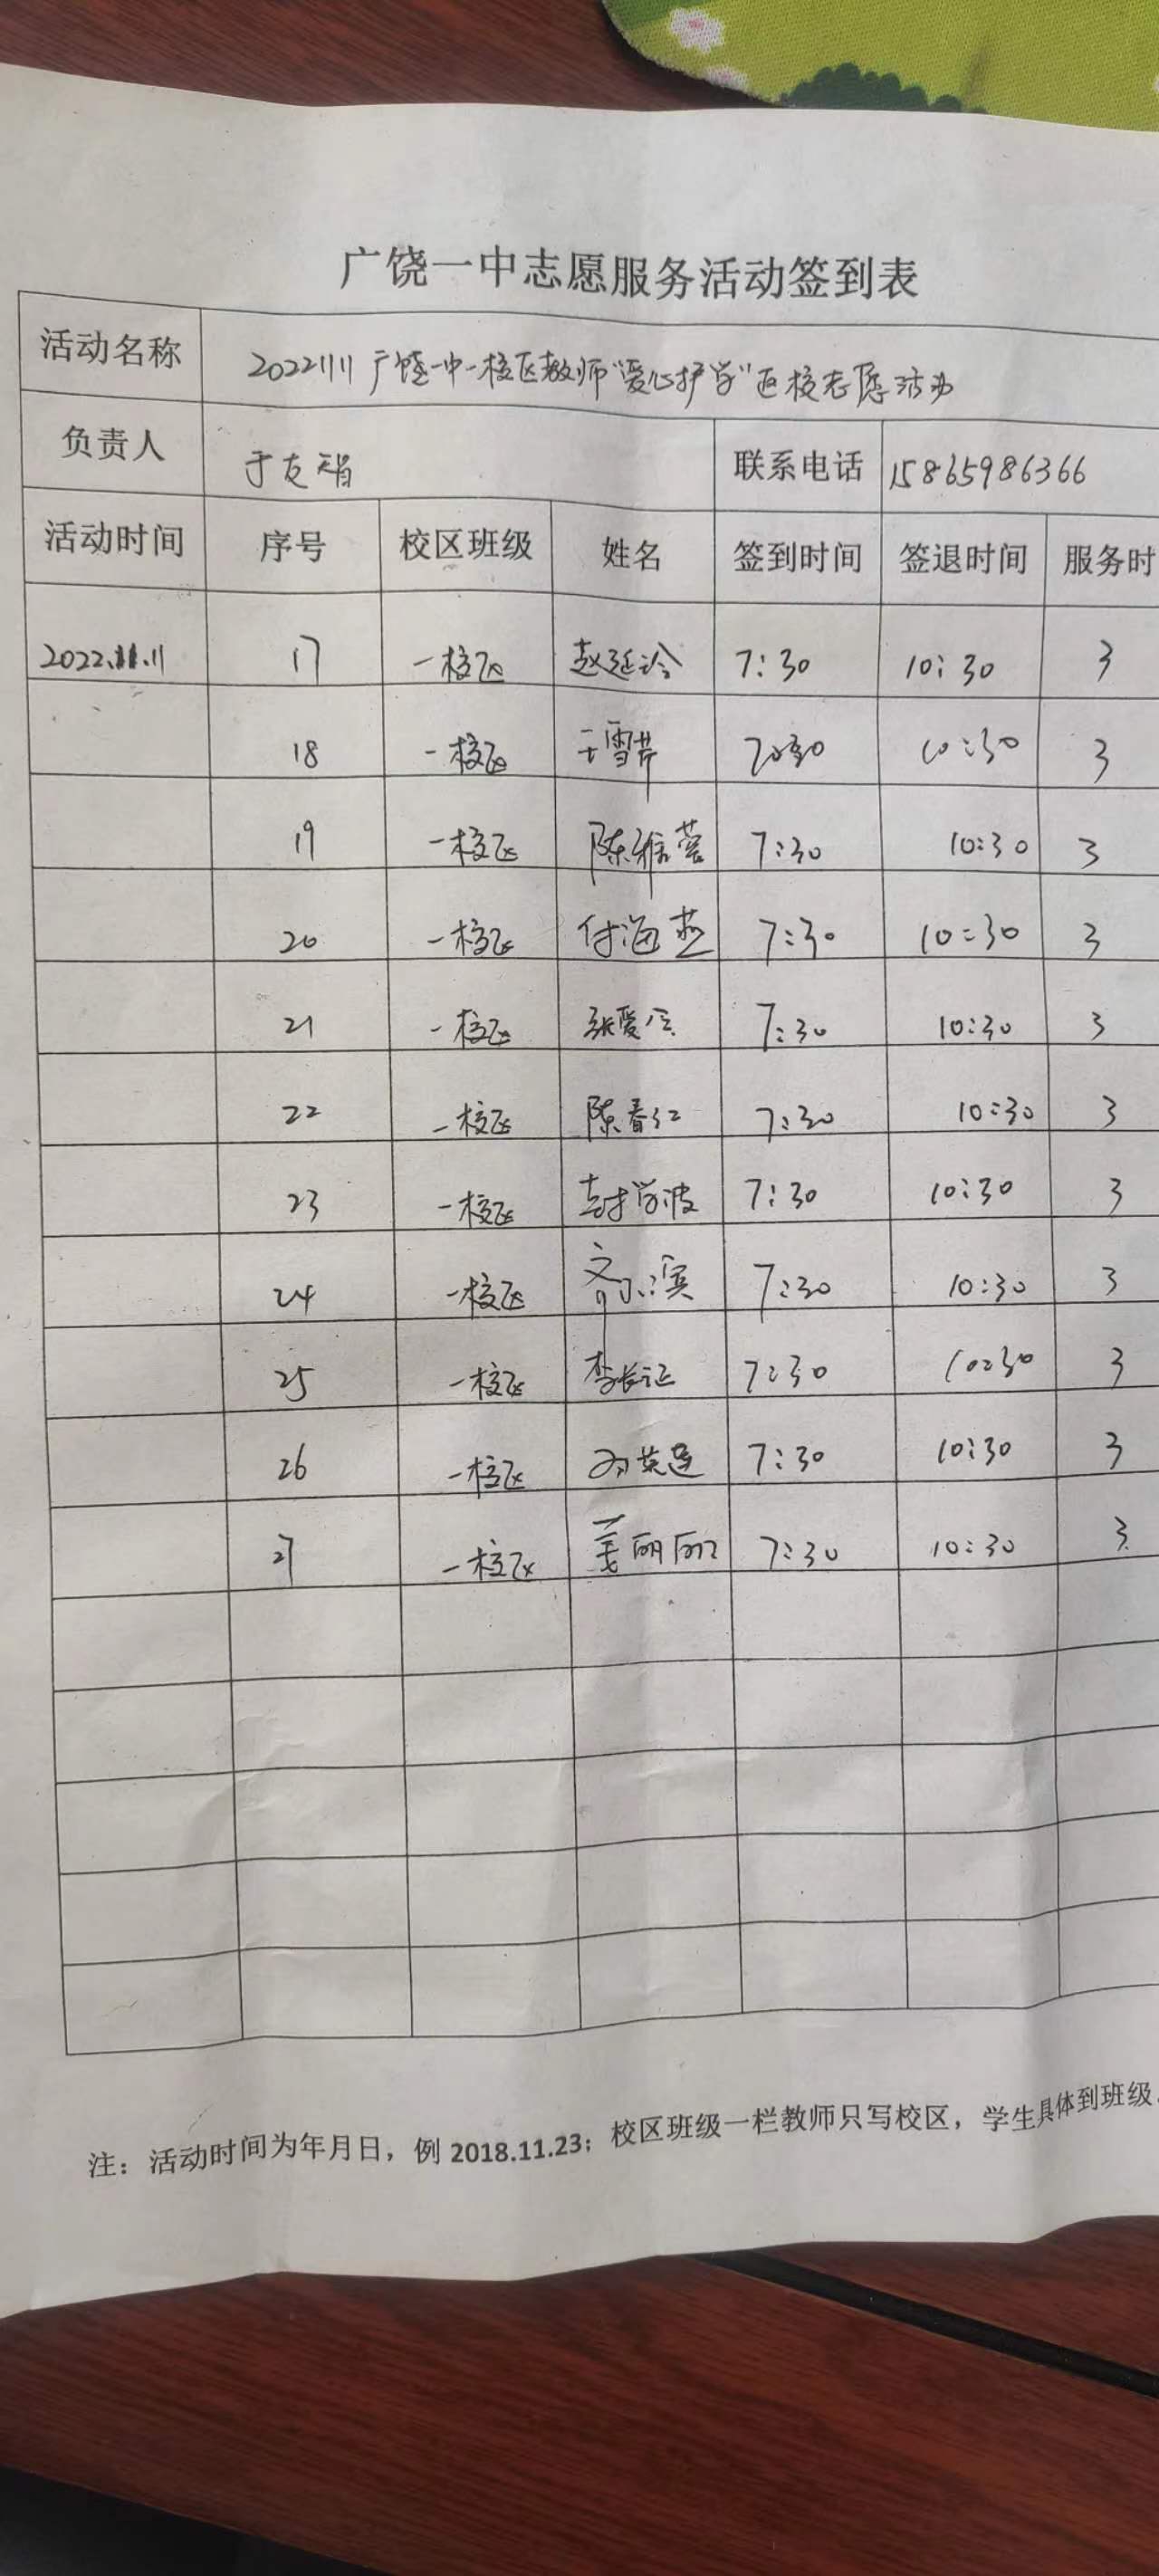 广饶一中志愿服务活动签到表
活动名称 20221111 广饶一中一校区教师“爱心护学”返校志愿活动
负责人 于友娟 联系电话 15865986366
活动时间 序号 校区班级 姓名 签到时间 签退时间 服务时
2022.11.11 17 一校区 赵延玲 7:30 10:30 3
18 一校区 王雪芹 7:30 10:30 3
19 一校区 陈雅蓉 7:30 10:30 3
20 一校区 付海燕 7:30 10:30 3
21 一校区 张爱 7:30 10:30 3
22 一校区 陈春红 7:30 10:30 3
23 一校区 学波 7:30 10:30 3
24 一校区 齐小滨 7:30 10:30 3
25 一校区 李长征 7:30 10:30 3
26 一校区 英莲 7:30 10:30 3
27 一校区 姜丽丽 7:30 10:30 3
注：活动时间为年月日，例 2018.11.23；校区班级一栏教师只写校区，学生具体到班级